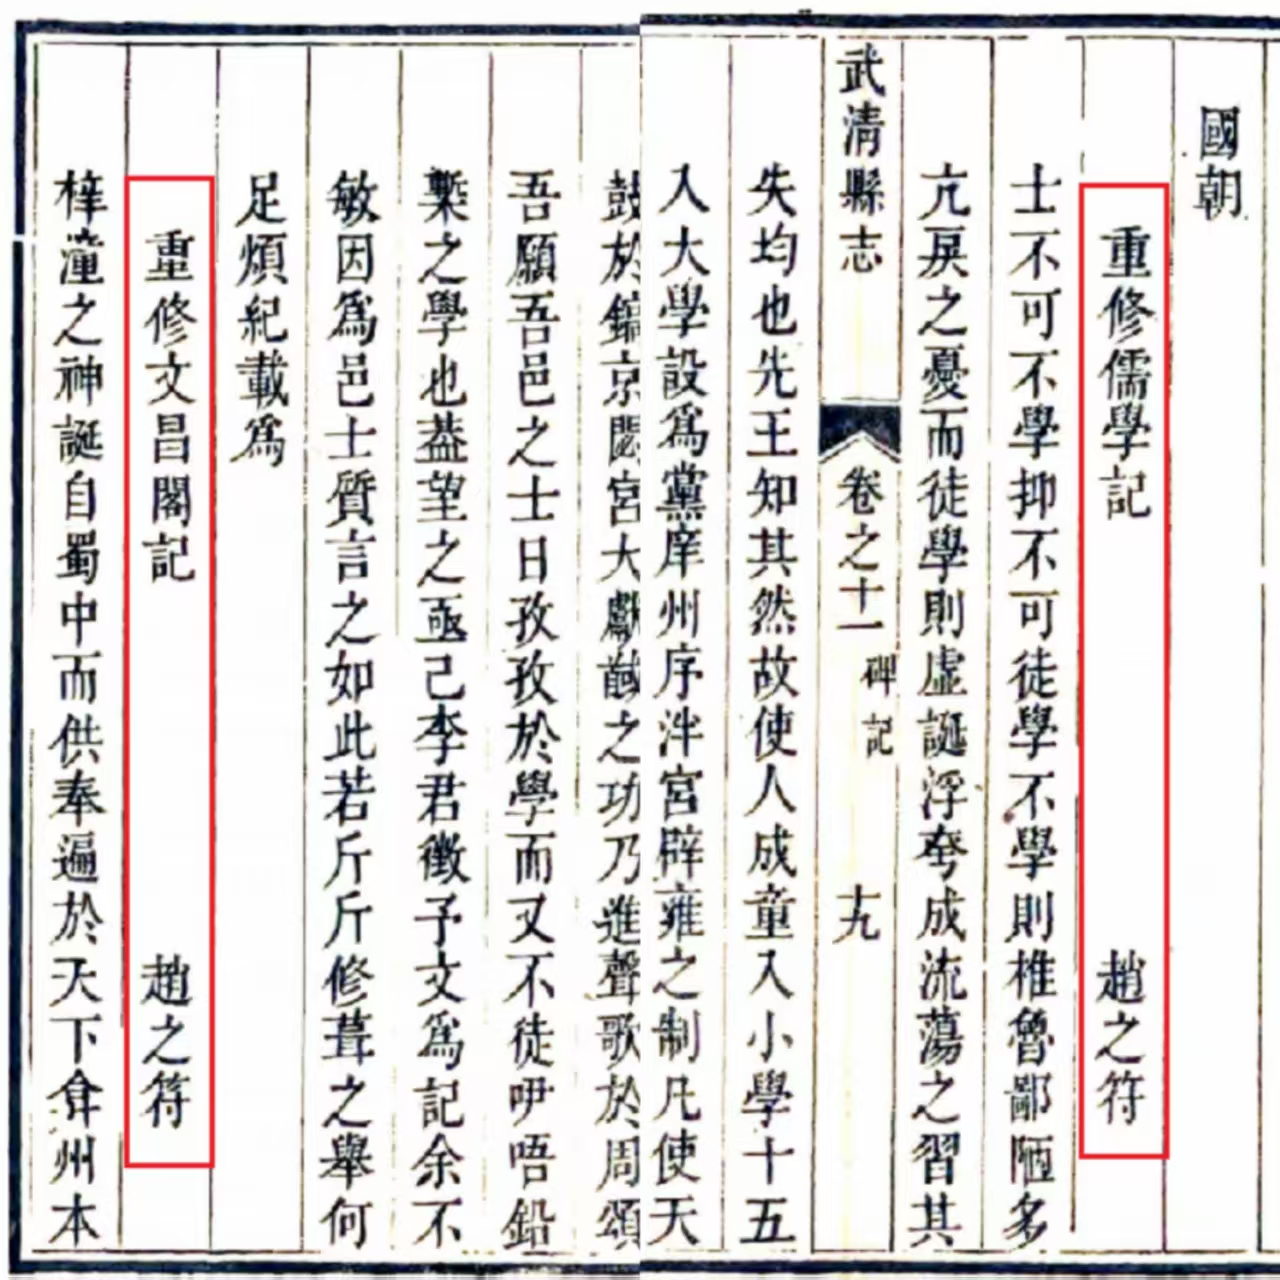 國朝
重修儒學記 趙之符
士不可不學抑不可徒學不學則椎魯鄙陋多
亢戾之憂而徒學則虛誕浮夸成流蕩之習其
武清縣志 卷之十一 碑記 十九
失均也先王知其然故使人成童入小學十五
入大學設為黨庠州序泮宮辟雍之制凡使天
鼓於鎬京閟宮大獻馘之功乃進聲歌於周頌
吾願吾邑之士日孜孜於學而又不徒吚唔鉛
槧之學也葢望之亟己李君徵予文為記余不
敏因為邑士質言之如此若斤斤修葺之舉何
足煩紀載為
重修文昌閣記 趙之符
梓潼之神誕自蜀中而供奉遍於天下弇州本